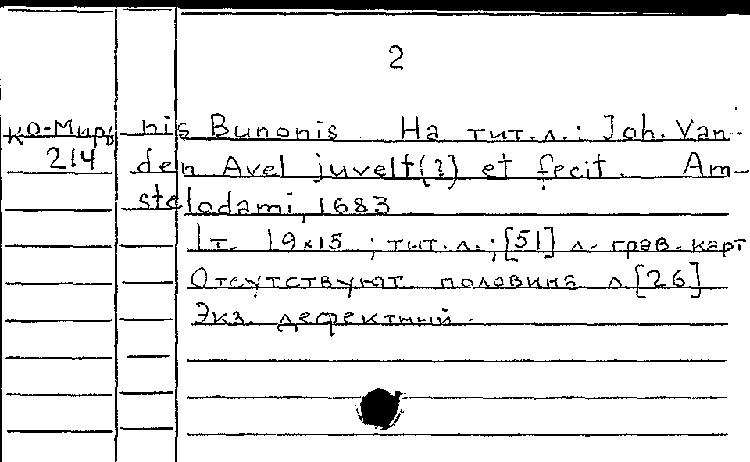 2
ко-Мир, nis Bunonis На тит.л.: Joh. Van
214 den Avel juvelt(?) et fecit. Am-
stelodami, 1683
1т. 19×15 ; тит.л.; [51] л. грав. карт
Отсутствует половина л.[26]
Экз. дефектный.